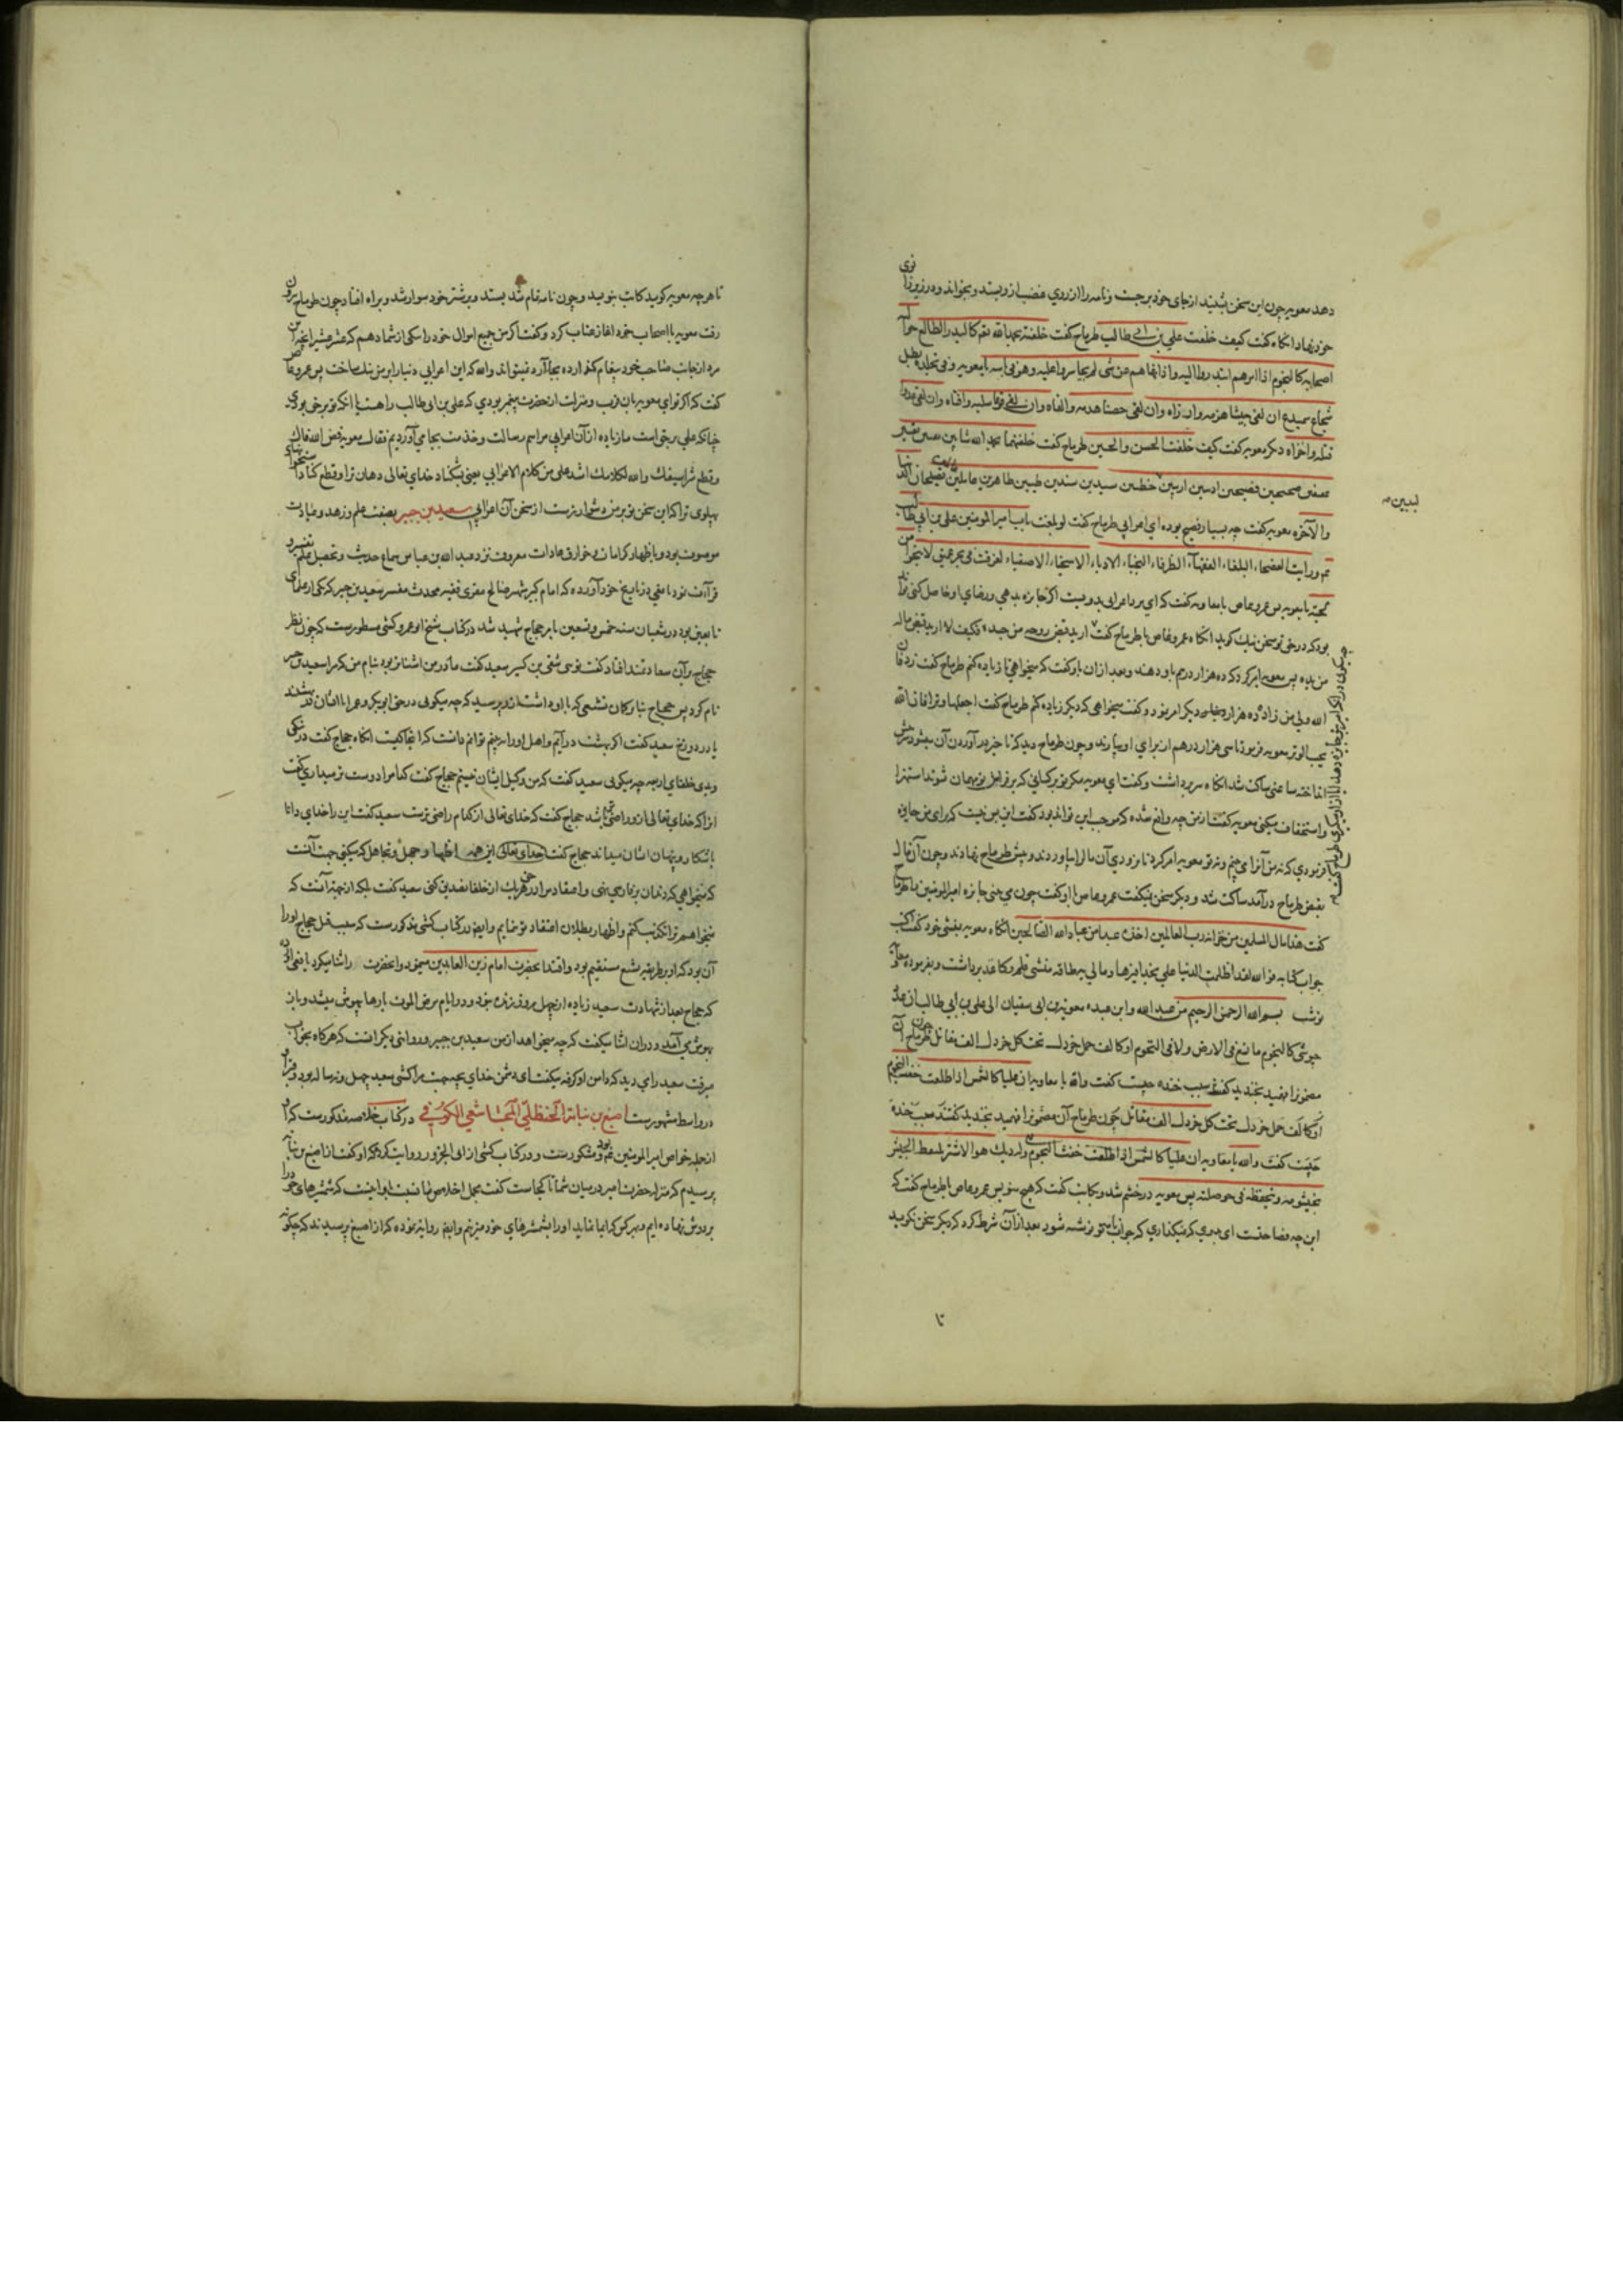 دهد معویه چون این سخن بشنید از جای خود برجست و نامه را از روی غضب ازو بستد و بخواند و در زیر زانوی
خود نهاد انکاه کفت کیف خلفت علی بن ابی طالب طرماح کفت خلفته بحمد الله نعم کالبدر الطالع حوله
اصحابه کالنجوم اذا امرهم ابتدروا الیه و اذا نهاهم عن شی لم یتجاسروا علیه و هو فی باسه یا معویه و فی تجلده بطل
شجاع سمیدع ان لقی جیشا هزمه وارداه وان لقی حصنا هدمه والفاه وان لقی قرنا سلبه وافناه وان لقی عدوا
قتله واخزاه دیکر معویه کفت کیف خلفت الحسن والحسین طرماح کفت خلفتهما بحمد الله شابین
صحیحین فصیحین ادیبین اریبین خطیبین سیدین سندین طیبین طاهرین عاملین یصلحان الدنیا
لبیبین
والآخره معویه کفت چه بسیار فصیح بوده ای اعرابی طرماح کفت لو بلغت باب امیر المومنین علی بن ابی طالب
ورایت الفصحاء البلغاء الفقهاء الظرفاء النجباء الادباء الاسخیاء الاصفیاء لغرقت فی بحر عمیق لا ینجو من
لجته یا معویه پس عمرو عاص با معاویه کفت که این مرد اعرابی بدویست اکر جایزه بدهی و رضای او حاصل کنی
بود که در حق تو سخن نیک کوید انکاه عمرو عاص با طرماح کفت
من بده پس معویه امر کرد که ده هزار درهم باو دهند و بعد ازان باو کفت که میخواهی تا زیاده کنم طرماح کفت زد فان
الله ولی من زاد ده هزار دیکر امر نمود و کفت میخواهی که دیکر زیاده کنم طرماح کفت اجعلها وترا فان الله
یحب الوتر معویه فرمود تا سی هزار درهم از برای او بیارند و چون طرماح دید که تاخیر در آوردن آن میشود سر در پیش
انداخته ساعتی ساکت شد انکاه سر برداشت و کفت ای معویه
واستخفاف میکنی معویه کفت از من چه واقع شده که موجب این تواند بود کفت این
فرمودی که نه من آنرا می بینم و نه تو معویه امر کرد تا بزودی آن مال را بیاوردند و پیش طرماح نهادند و چون آن مال
بقبض طرماح درآمد ساکت شد و دیکر سخن نمیکفت عمرو عاص باو کفت چون می بینی جایزه امیرالمومنین را طرماح
کفت هذا مال المسلمین من خزانة رب العالمین اخذه عبد من عباد الله الصالحین انکاه معویه بمنشی خود کفت اکتب
جواب کتابه فوالله لقد اظلمت الدنیا علی بحذافیرها ومالی به طاقة منشی قلم و کاغذ برداشت و بفرموده معاویه
نوشت بسم الله الرحمن الرحیم من عبد الله وابن عبده معویة بن ابی سفیان الی علی بن ابی طالب
جیوشی کالنجوم ما تسع فی الارض ولا فی التخوم او کالف حمل خردل تحت کل خردل الف مقاتل چون طرماح آن
مضمون را فهمید بخندید کفت سبب خنده چیست کفت والله یا معاویه ان علیا کالشمس اذا طلعت
او کالف حمل خردل تحت کل خردل الف مقاتل چون طرماح آن مضمون را فهمید بخندید کفتند سبب خنده
چیست کفت والله یا معاویه ان علیا کالشمس اذا طلعت خنست النجوم ولدیک هو الاشتر یلتقط الجیش
بخیشومه ویحفظه فی حوصلته پس معویه در خشم شد و بکاتب کفت که هیچ منویس عمرو عاص با طرماح کفت که
این چه فضاحتست ای بدوی که نمیکذاری که جواب نامه تو نوشته شود بعد از آن شرط کرد که دیکر سخن نکوید
تا
تا هرچه معویه کوید کاتب بنویسد و چون نامه تمام شد بستد و بر شتر خود سوار شد و براه افتاد چون طرماح بیرون
رفت معویه با اصحاب خود اغاز عتاب کرد و کفت اکر من جمیع اموال خود را بیکی از شما دهم که عشر عشیر انچه این
مرد از جانب صاحب خود پیغام کذارده بجا آرد نمیتواند والله که این اعرابی دنیا را بر من تنک ساخت پس عمرو عاص
کفت که اکر ترا ای معویه بان قرب و منزلت از حضرت پیغمبر بودی که علی بن ابی طالب راهست یا انکه تو بر حق بودی
چنانکه علی بر حق است ما زیاده از آن اعرابی مراسم رسالت و خدمت بجا می آوردیم فقال معویه فض الله فاک
وقطع شراسیفک والله لکلامک اشد علی من کلام الاعرابی یعنی بشکناد خدای تعالی دهان ترا و قطع کناد استخوانهای
پهلوی ترا که این سخن تو بر من دشوارترست از سخن آن اعرابی سعید بن جبیر بصفت علم و زهد و عبادت
موصوف بود و باظهار کرامات و خوارق عادات معروف نزد عبد الله بن عباس سماع حدیث و تحصیل علم تفسیر و
قرآت نمود یافعی در تاریخ خود آورده که امام کبیر شهیر صالح مقری فقیه محدث مفسر سعید بن جبیر که یکی از علمای
تابعین بود در شعبان سنه خمس و تسعین بامر حجاج شهید شد در کتاب شیخ ابو عمرو کشی مسطورست که چون نظر
حجاج بر آن سعادتمند افتاد کفت توی شقی بن کسیر سعید کفت مادر من اشناتر بود بنام من که مرا سعید بن جبیر
نام کرد پس حجاج بنا بر کمان تشیعی که باو داشت ازو پرسید که چه میکوی در حق ابوبکر و عمر ایا ایشان در بهشتند
یا در دوزخ سعید کفت اکر بهشت در آیم و اهل اورا ببینم توانم دانست که در انجا کیست انکاه حجاج کفت در نیکی
و بدی خلفای اربعه چه میکوی سعید کفت که من وکیل ایشان نیستم حجاج کفت کدام را دوست تر میداری کفت
انرا که خدای تعالی ازو راضی تر باشد حجاج کفت که خدای تعالی از کدام راضی ترست سعید کفت این را خدای دانا
باشکار و پنهان ایشان میداند حجاج کفت خدای تعالی این همه اظهار جهل و تجاهل که میکنی جهت آنست
که نمیخواهی
نمیخواهم ترا تکذیب کنم و اظهار بطلان اعتقاد تو نمایم و ایضا در کتاب کشی مذکورست که سبب قتل حجاج اورا
آن بود که او بر طریقه تشیع مستقیم بود و اقتدا بحضرت امام زین العابدین مینمود و آنحضرت را ثنا میکرد
که حجاج بعد از شهادت سعید زیاده از چهل روز زنده نبود و در ایام مرض الموت بارها بیهوش میشد و باز
بهوش می آمد و دران اثنا میکفت که چه میخواهد از من سعید بن جبیر و روایتی دیکر انست که هرکاه بخواب
میرفت سعید را می دید که دامن او کرفته میکفت ای دشمن خدای بچه جهت مرا کشتی سعید چهل و نه ساله بود و مزار او
در واسط مشهورست اصبغ بن نباته الحنظلی المجاشعی الکوفی در کتاب خلاصه مذکورست که او
از جمله خواص امیر المومنین بود و مشکورست و در کتاب کشی از ابی الجارود روایت کرده که او کفت از اصبغ بن نباته
پرسیدم که منزله حضرت امیر در میان شما تا کجاست کفت مجمل اخلاص ما نسبت باو اینست که شمشیرهای خود را
بر دوش نهاده ایم و بهر کس که ایما نماید اورا بشمشیرهای خود میزنیم و ایضا روایة نموده که از اصبغ پرسیدند که چکونه